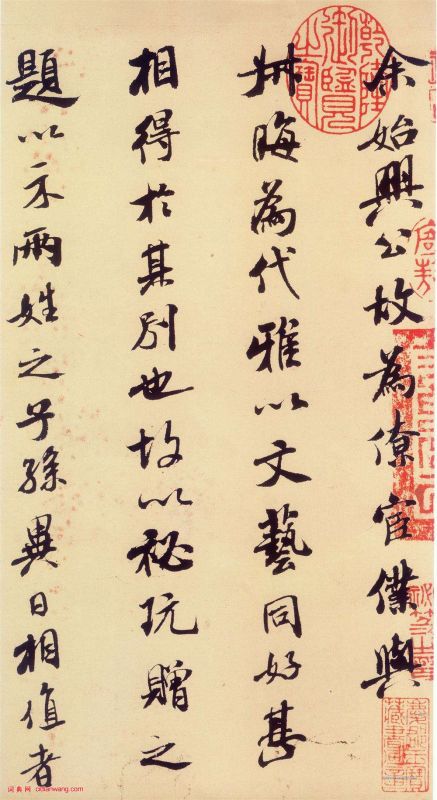 余始興公故為僚宦僕與
叔晦為代雅以文藝同好甚
相得於其別也故以祕玩贈之
題以示兩姓之子孫異日相值者
乾隆御覽之寶
词典网 cidianwang.com